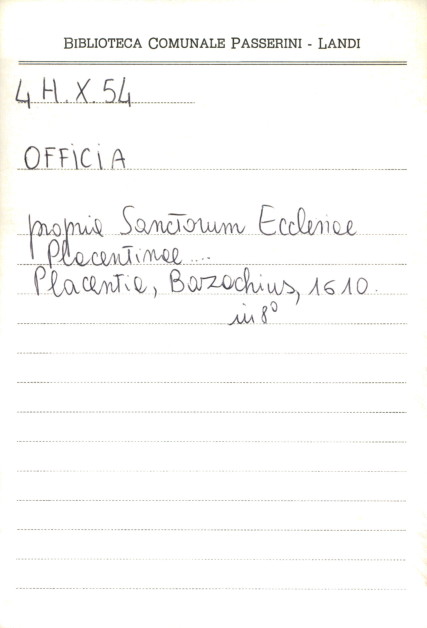 BIBLIOTECA COMUNALE PASSERINI - LANDI
4 H. X. 54
OFFICIA
propria Sanctorum Ecclesiae
Placentinae ...
Placentia, Bazachius, 1610.
in 8°